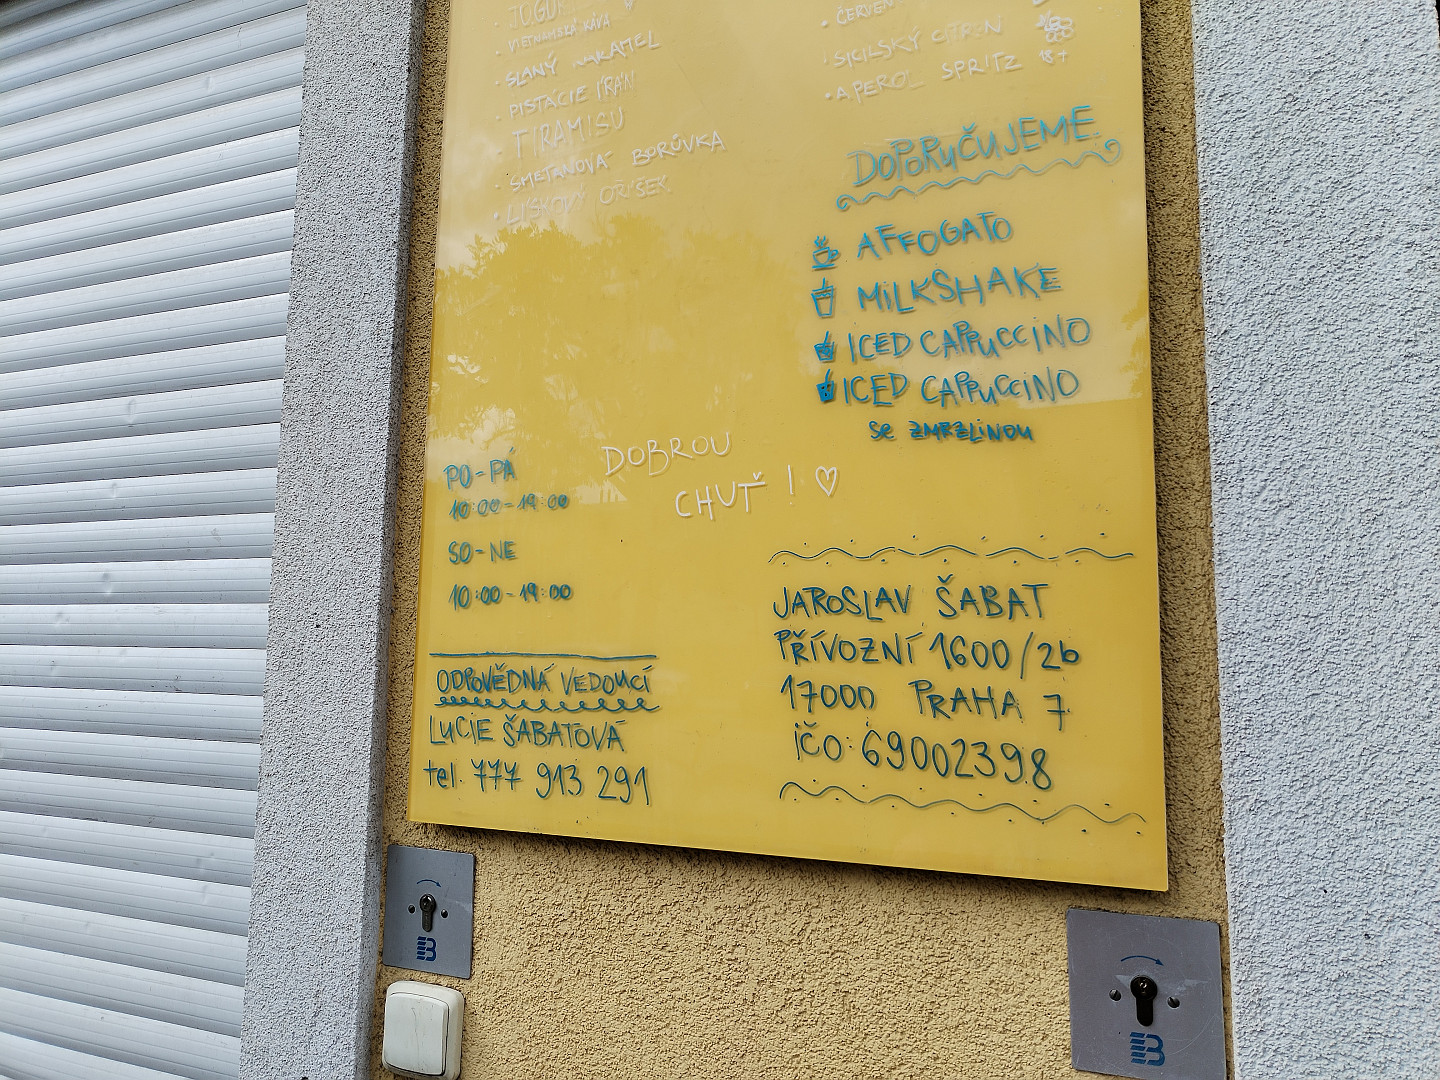 VIETNAMSKÁ KÁVA
· SLANÝ KARAMEL
· PISTÁCIE ÍRÁN
TIRAMISU
· SMETANOVÁ BORŮVKA
· LÍSKOVÝ OŘÍŠEK
· ČERVEN
· SICILSKÝ CITRON
· APEROL SPRITZ 18+
DOPORUČUJEME
AFFOGATO
MILKSHAKE
ICED CAPPUCCINO
ICED CAPPUCCINO
se ZMRZLINOU
DOBROU
CHUŤ! ♡
PO-PÁ
10:00-19:00
SO-NE
10:00-19:00
ODPOVĚDNÁ VEDOUCÍ
LUCIE ŠABATOVÁ
tel. 777 913 291
JAROSLAV ŠABAT
PŘÍVOZNÍ 1600/2b
17000 PRAHA 7
IČO: 69002398